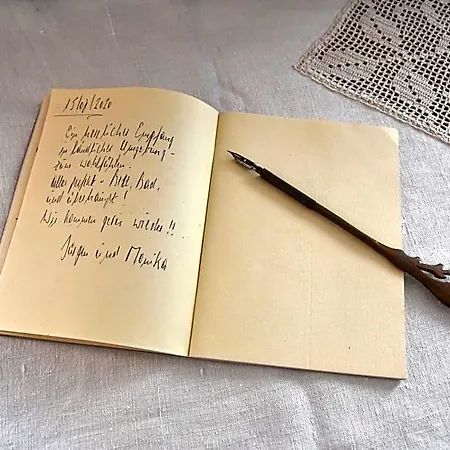 15/07/2020
Ein herzlicher Empfang
in ländlicher Umgebung -
zum wohlfühlen.
Alles perfekt - Bett, Bad,
und überhaupt!
Wir kommen gern wieder!!
Jürgen und Monika